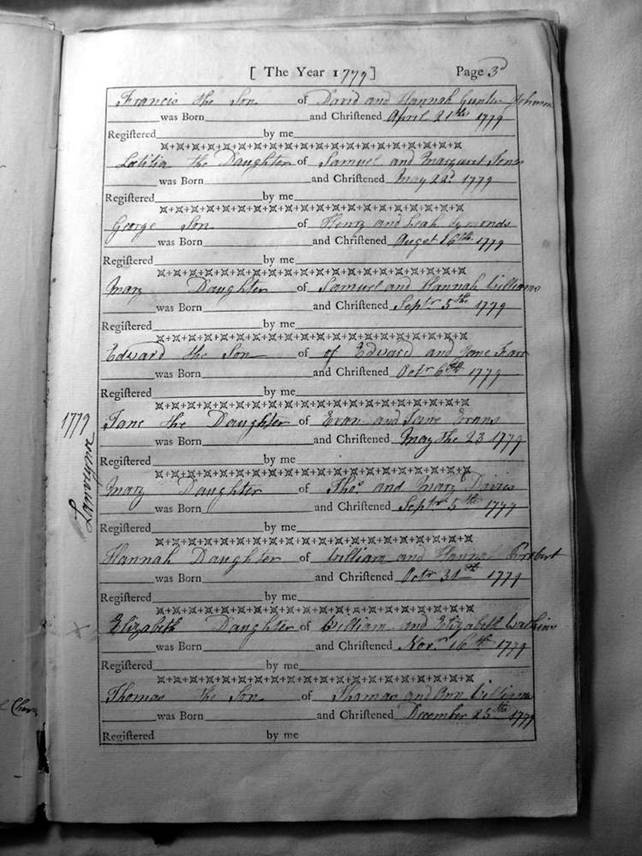 [ The Year 1779 ] Page 3d
Francis the Son of David and Hannah Gunter Johnson
was Born and Christened April 21th 1779
Registered by me
Lætitia the Daughter of Samuel and Margaret
was Born and Christened May 22d 1779
Registered by me
George Son of Henry and Leah Symonds
was Born and Christened August 16th 1779
Registered by me
Mary Daughter of Samuel and Hannah Williams
was Born and Christened Septr 5th 1779
Registered by me
Edward the Son of of Edward and Jane Farr
was Born and Christened Octr 6th 1779
Registered by me
1779
Jane the Daughter of Evan and Jane Evans
was Born and Christened May the 23 1779
Registered by me
Mary Daughter of Thos and Mary Davies
was Born and Christened Septr 5th 1779
Registered by me
Hannah Daughter of William and Hannah Probert
was Born and Christened Octr 31st 1779
Registered by me
Elizabeth Daughter of William and Elizabeth Watkins
was Born and Christened Novr 16th 1779
Registered by me
Thomas the Son of Thomas and Ann William
was Born and Christened December 25th 1779
Registered by me